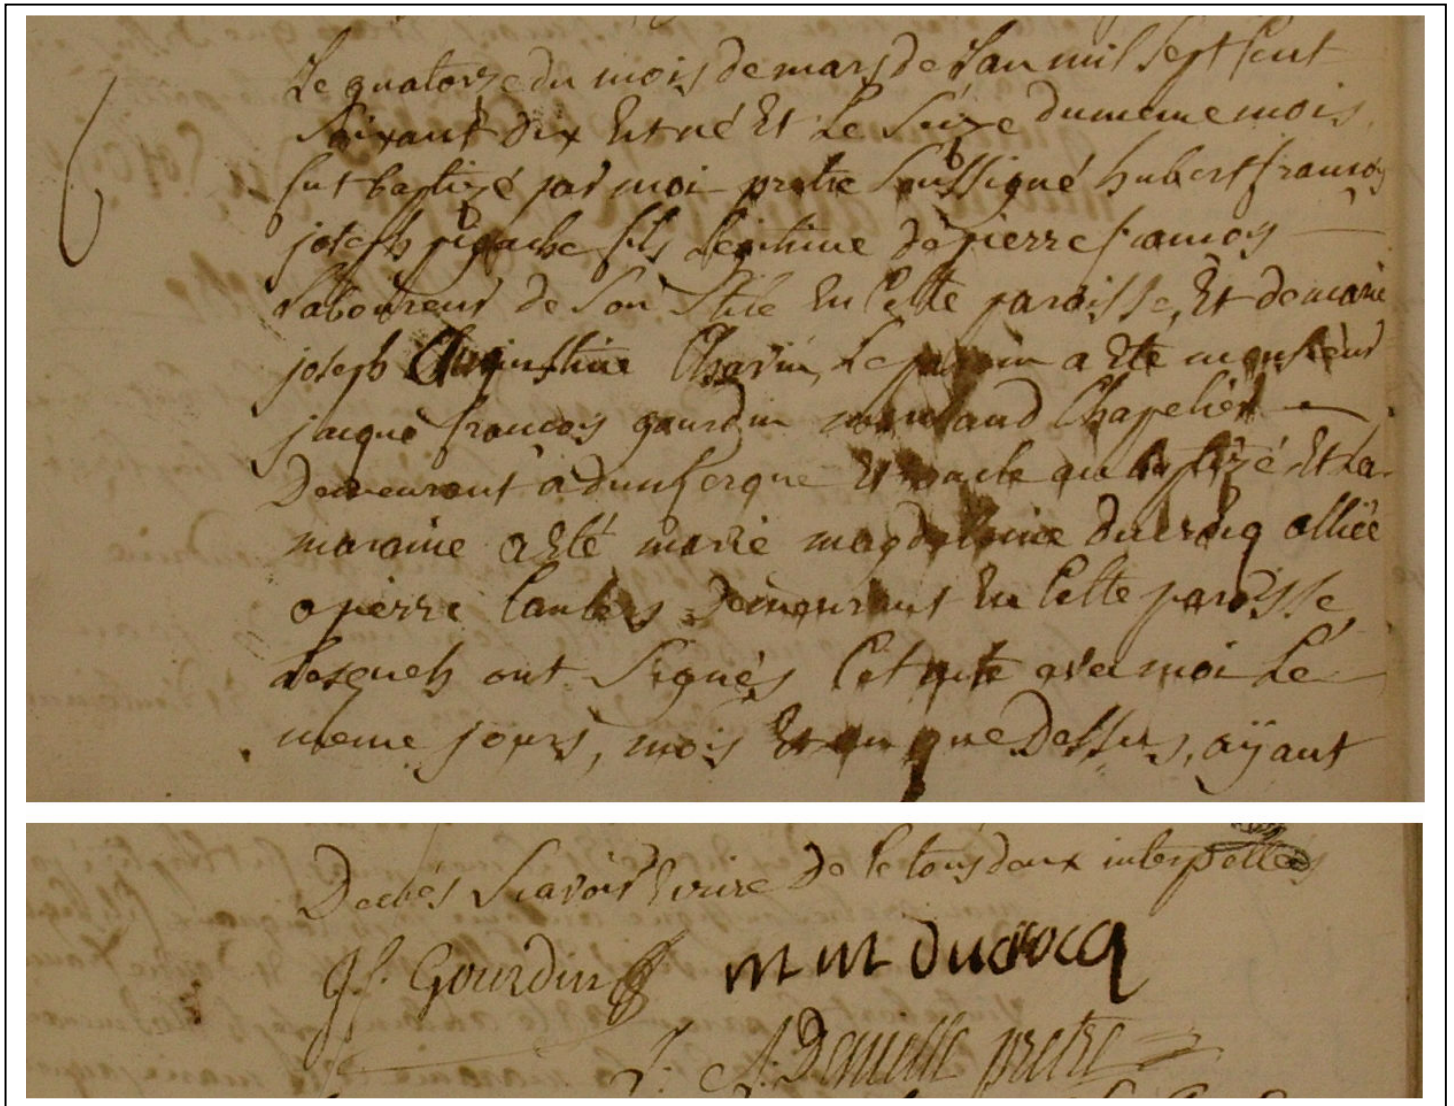 Le quatorze du mois de mars de l'an mil sept cent
soixante dix est né et le seize du meme mois
fut baptizé par moi pretre soussigné hubert francois
joseph pigache fils legitime de pierre francois
laboureur de son stile en cette paroisse, et de marie
joseph Augustine Chavin, le parain a eté monsieur
jacque francois gourdin marchand Chapelier
Demeurant a dunkerque et oncle au baptizé et la
maraine a eté marie magdeleine ducrocq alliée
a pierre lambers demeurant en cette paroisse
lesquels ont signés cet acte avec moi le
meme jours, mois et an que dessus, aÿant
Declarés scavoir ecrire de ce tous deux interpellés
J f. Gourdin
m m ducrocq
J. A. Denielle pretre